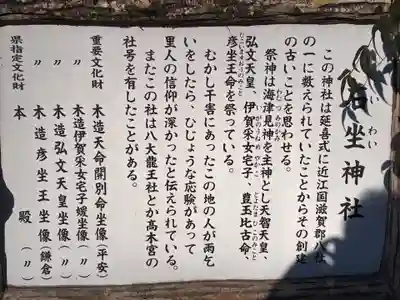 石坐神社
いわい
この神社は延喜式に近江国滋賀郡八社
の一に数えられていたことからその創建
の古いことを思わせる。
祭神は海津見神を主神とし天智天皇、
弘文天皇、伊賀采女宅子、豊玉比古命、
彦坐王命を祭っている。
むかし干害にあったこの地の人が雨乞
いをしたら、ひじょうな応験があって
里人の信仰が深かったと伝えられている。
またこの社は八大龍王社とか高木宮の
社号を有したことがある。
重要文化財 木造天命開別命坐像(平安)
〃 木造伊賀采女宅子媛坐像(〃)
〃 木造弘文天皇坐像(〃)
〃 木造彦坐王坐像(鎌倉)
県指定文化財 本殿(〃)